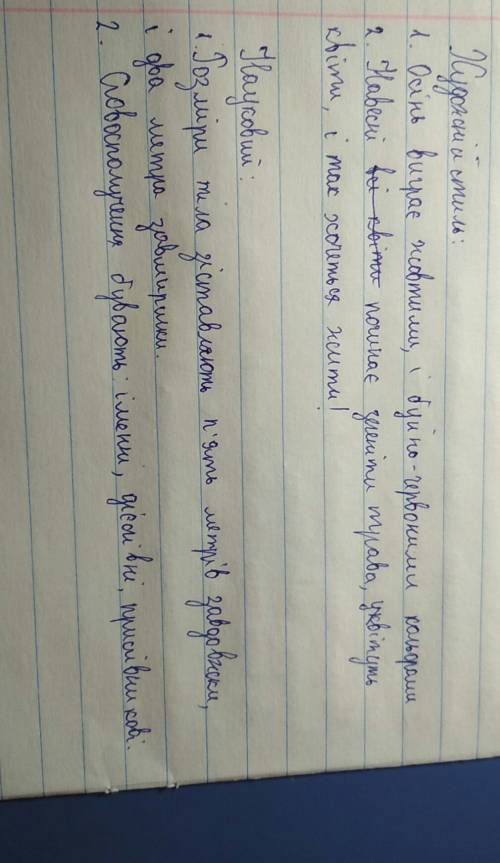 Художній стиль:
1. Осінь виграє жовтими, і буйно-червоними кольорами
2. Навесні всі квіти починає зеленіти трава, цвітуть
квіти, і так хочеться жити!
Науковий:
1. Розміри тіла зіставляють п'ять метрів завдовжки,
і два метра завширшки.
2. Словосполучення бувають: іменні, дієслівні, прислівникові.